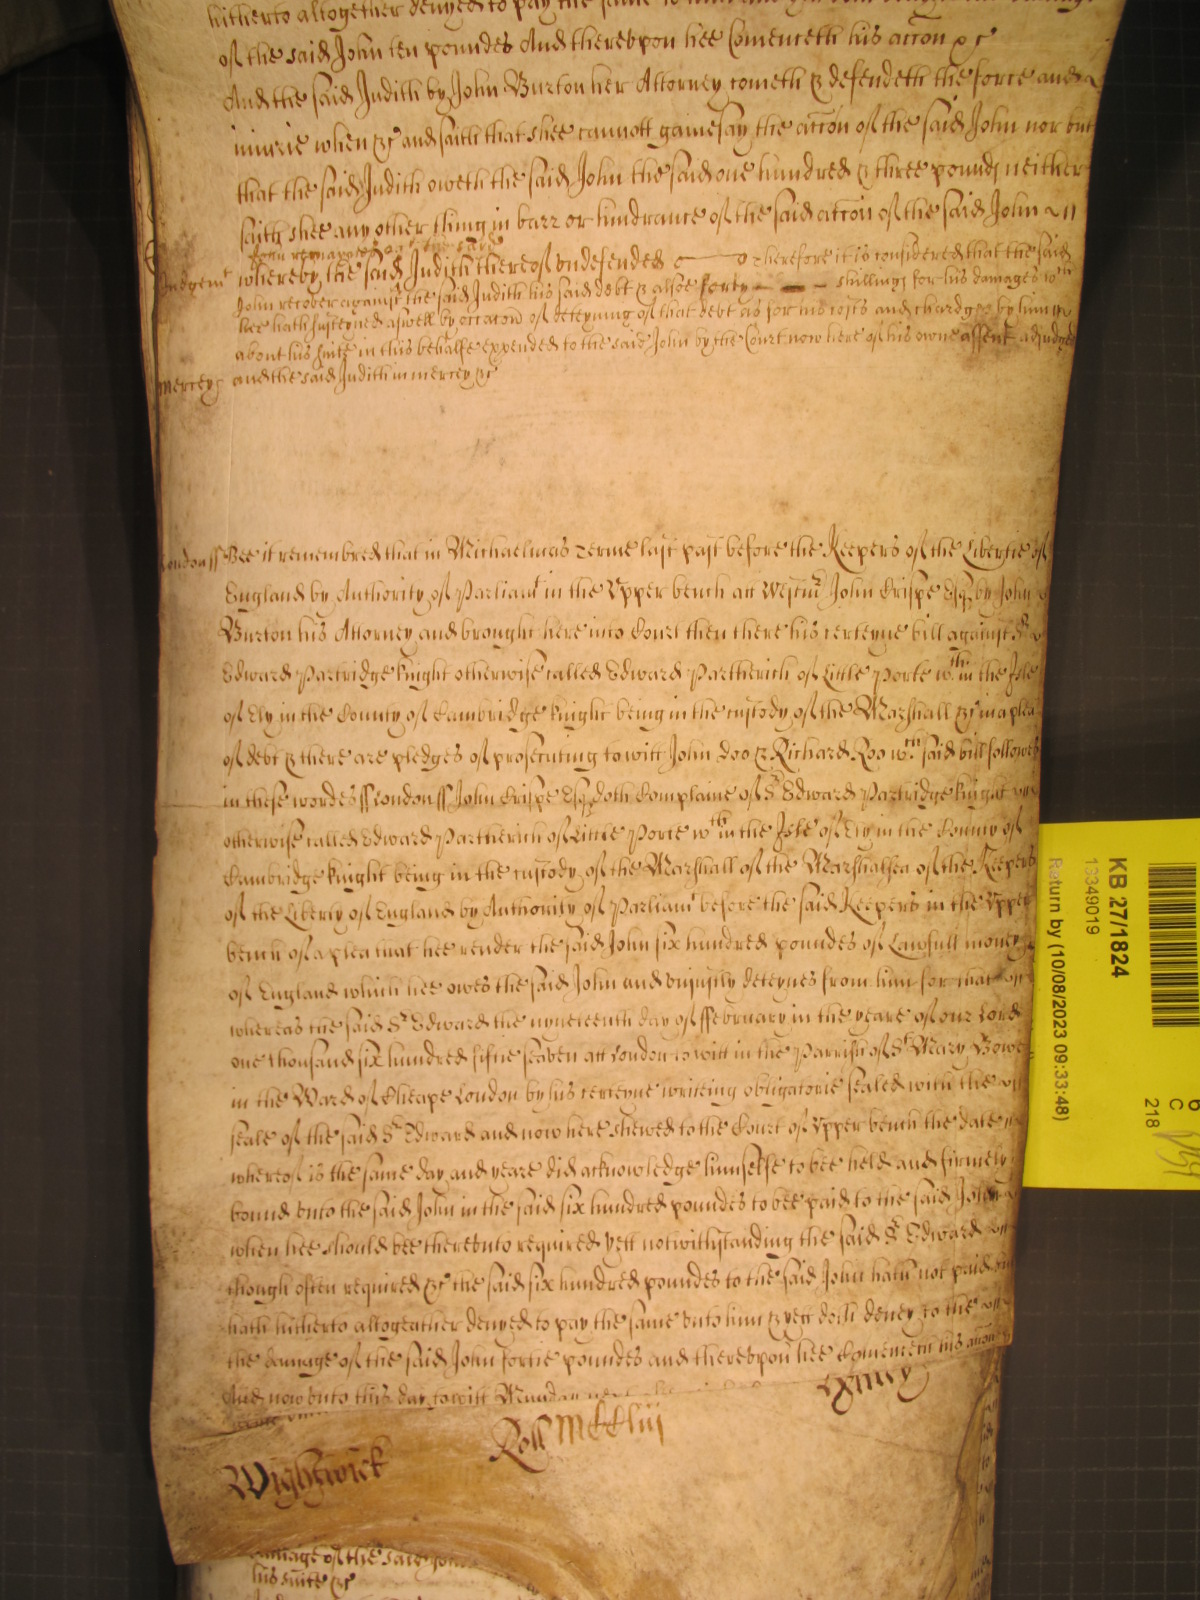 hitherto altogether denyed to pay the same
of the said John ten poundes And therevpon hee Comenceth his accon &c
And the said Judith by John Burton her Attorney cometh & defendeth the force and
iniurie when &c and saith that shee cannott gainesay the accon of the said John nor but
that the said Judith oweth the said John the said one hundred & three pounds neither
saith shee any other thing in barr or hindrance of the said accon of the said John
John remaynes ag the said
whereby the said Judith thereof vndefended Therefore it is considered that the said
Judgemt
John recover against the said Judith his said debt & alsoe forty shillings for his damages wch
hee hath susteyned aswell by occacon of deteyning of that debt as for his costs and chardges by him
about his suite in this behalfe expended to the said John by the Court now here of his owne assent adiudged
Mercy and the said Judith in mercy &c
London ss Bee it remembred that in Michaelmas Terme last past before the Keepers of the Libertie of
England by Authority of Parliamt in the Vpper bench att Westmr John Crispe Esqr by John
Burton his Attorney and brought here into Court then there his certeyne bill against Sr
Edward Partridge knight otherwise called Edward Partherich of Little Porte wthin the Isle
of Ely in the County of Cambridge knight being in the custody of the Marshall &c in a plea
of debt & there are pledges of prosecuting to witt John Doo & Richard Roo wch said bill followes
in these wordes ss London ss John Crispe Esqr doth Complaine of Sr Edward Partridge knight
otherwise called Edward Partherich of Little Porte wthin the Isle of Ely in the County of
Cambridge knight being in the custody of the Marshall of the Marshalsea of the Keepers
of the Liberty of England by Authority of Parliamt before the said Keepers in the Vpper
bench of a plea that hee render the said John six hundred poundes of Lawfull money
of England which hee owes the said John and vniustly deteynes from him for that
whereas the said Sr Edward the nyneteenth day of ffebruary in the yeare of our Lord
one thousand six hundred fiftie seaven att London to witt in the Parrish of St Mary Bowe
in the Ward of Cheape London by his certeyne writeing obligatorie sealed with the
seale of the said Sr Edward and now here shewed to the Court of Vpper bench the date
whereof is the same day and yeare did acknowledge himselfe to bee held and firmely
bound vnto the said John in the said six hundred poundes to bee paid to the said John
when hee should bee therevnto required yett notwithstanding the said Sr Edward
though often required &c the said six hundred poundes to the said John hath not paid
hath hitherto altogeather denyed to pay the same vnto him & yett doth deney to the
the damage of the said John fortie poundes and therevpon hee Comenceth his accon
And now vnto this day to witt Munday next
Wightwick
Roll
damage of the said John
his suite &c
KB 27/1824
13349019
Return by (10/08/2023 09:33:48)
6
C
218